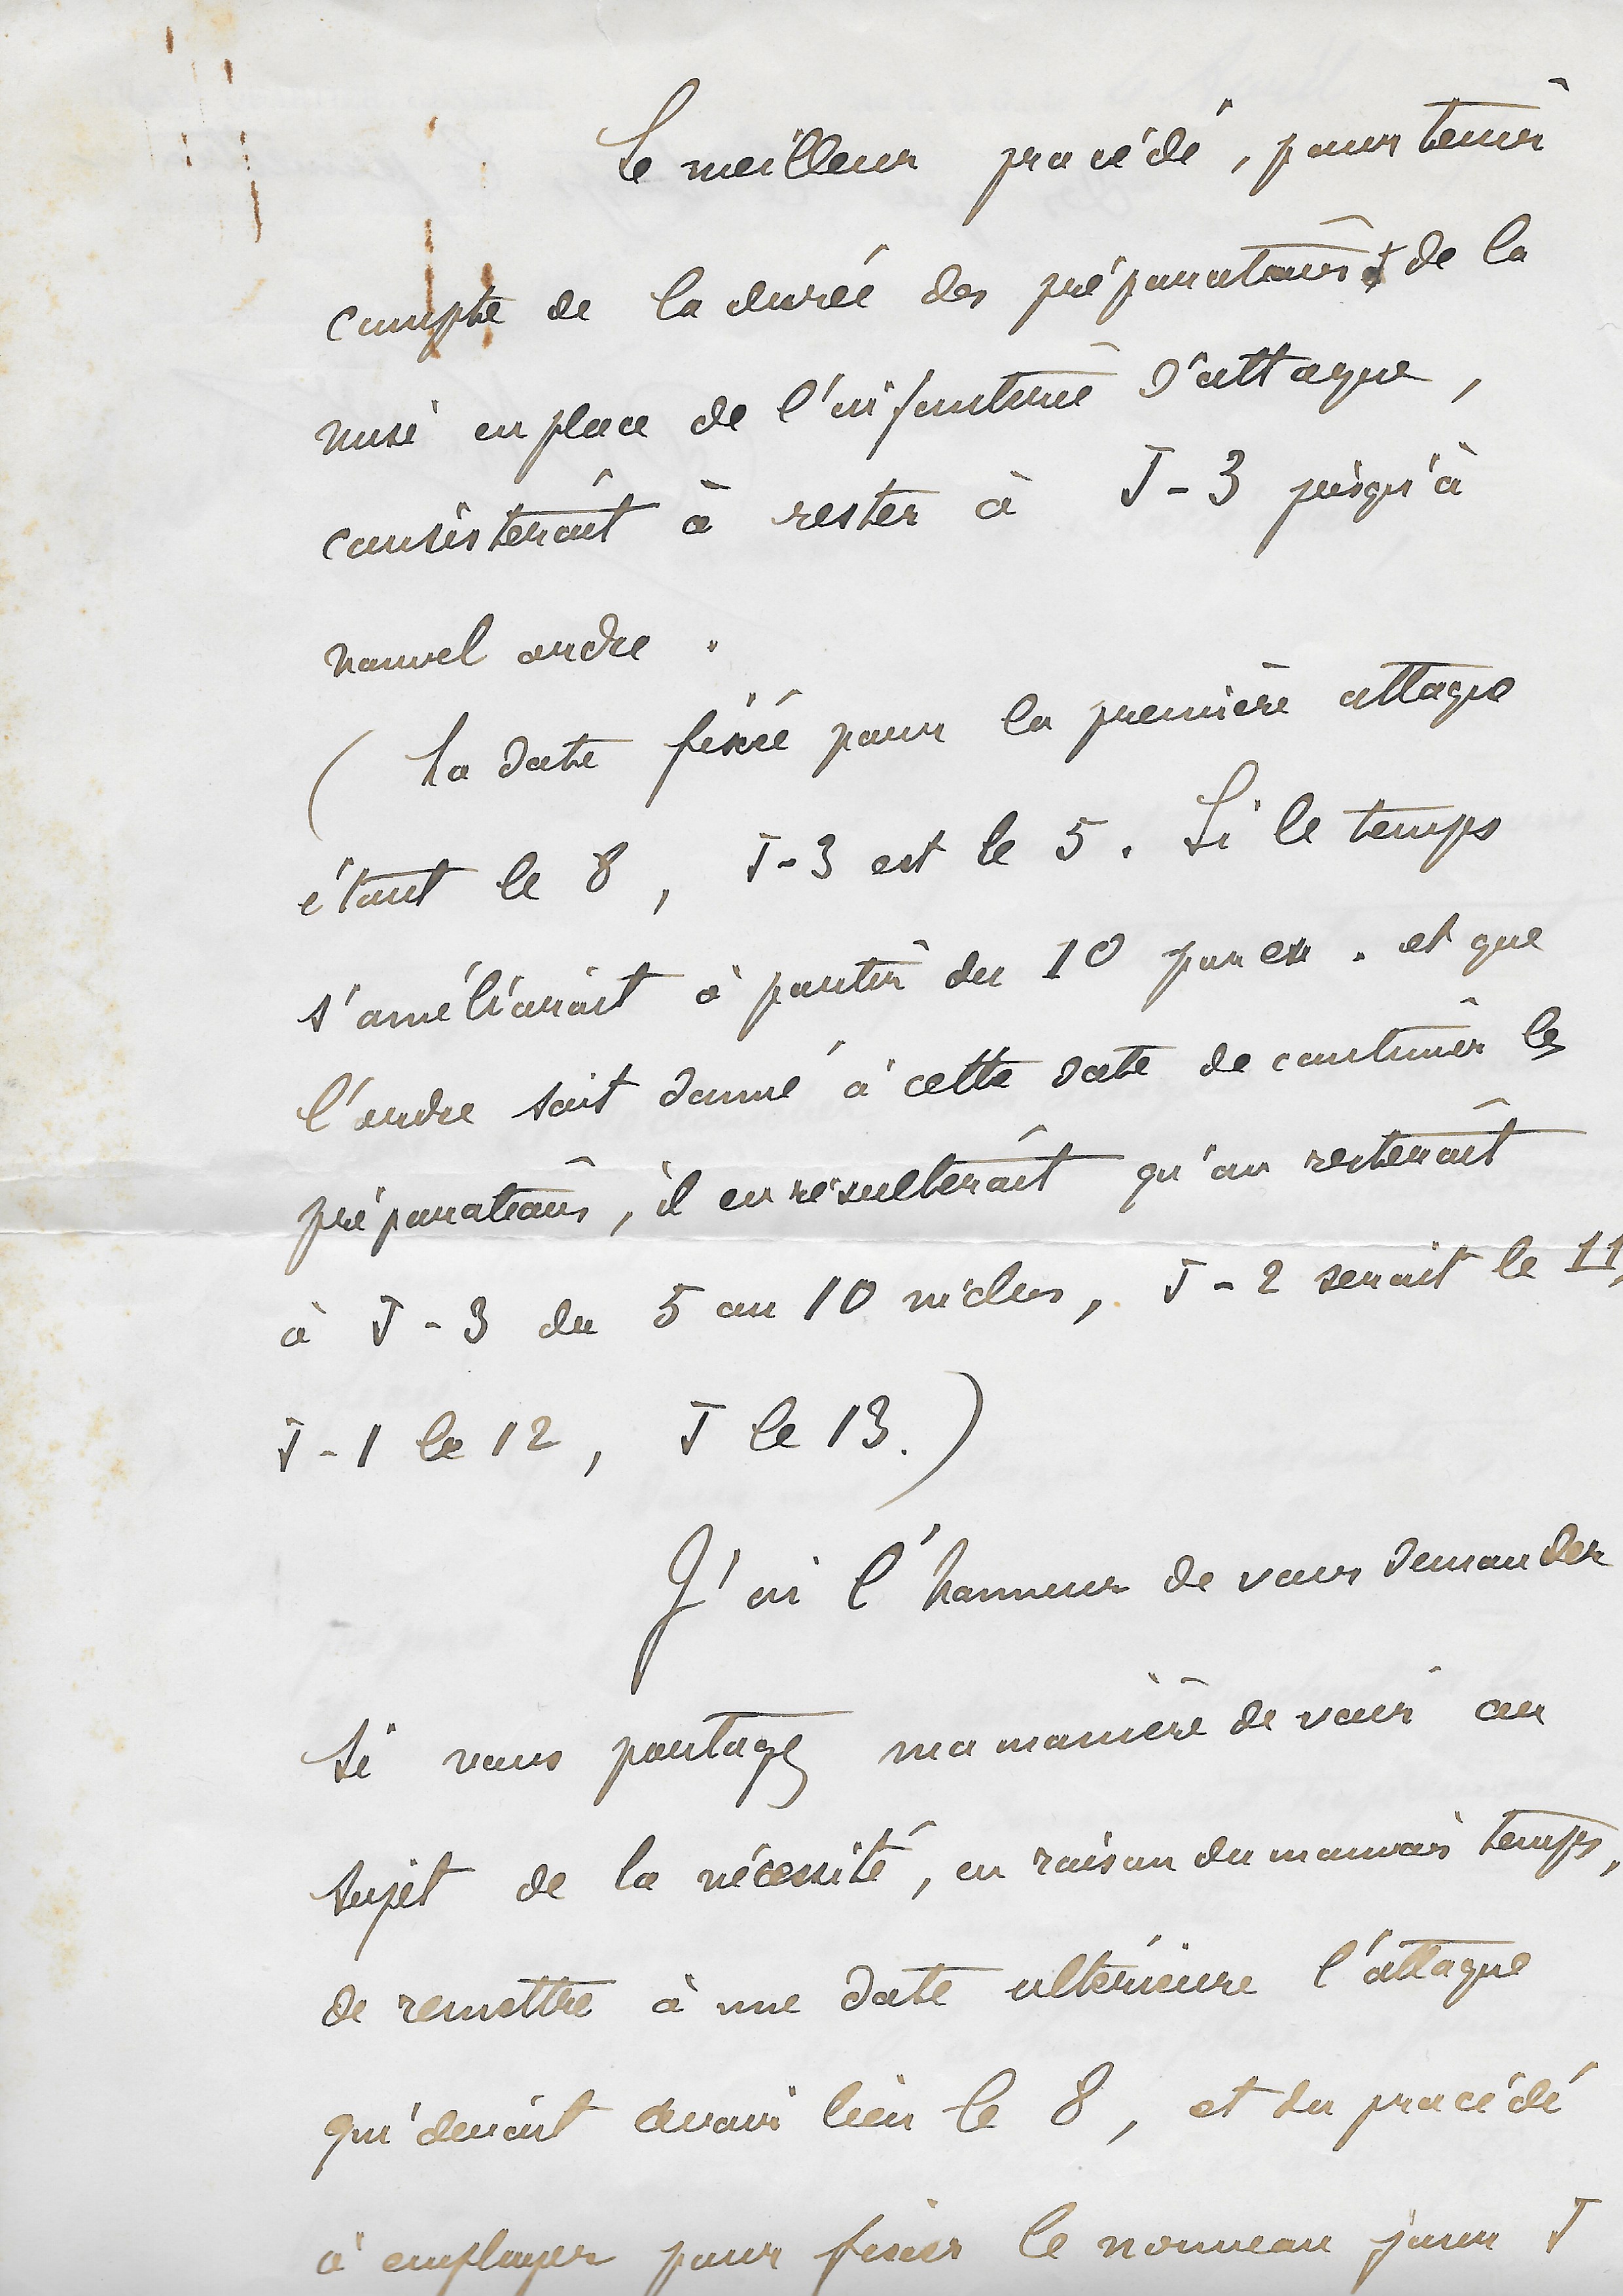 Le meilleur procédé, pour tenir
compte de la durée des préparations et de la
mise en place de l'infanterie d'attaque,
consisterait à rester à J-3 jusqu'à
nouvel ordre.
( La date fixée pour la première attaque
étant le 8, J-3 est le 5. Si le temps
s'améliorait à partir du 10 par ex. et que
l'ordre soit donné à cette date de continuer les
préparations, il en résulterait qu'on resterait
à J-3 du 5 au 10 inclus, J-2 serait le 11,
J-1 le 12, J le 13.)
J'ai l'honneur de vous demander
si vous partagez ma manière de voir au
sujet de la nécessité, en raison du mauvais temps,
de remettre à une date ultérieure l'attaque
qui devait avoir lieu le 8, et du procédé
à employer pour fixer le nouveau jour J